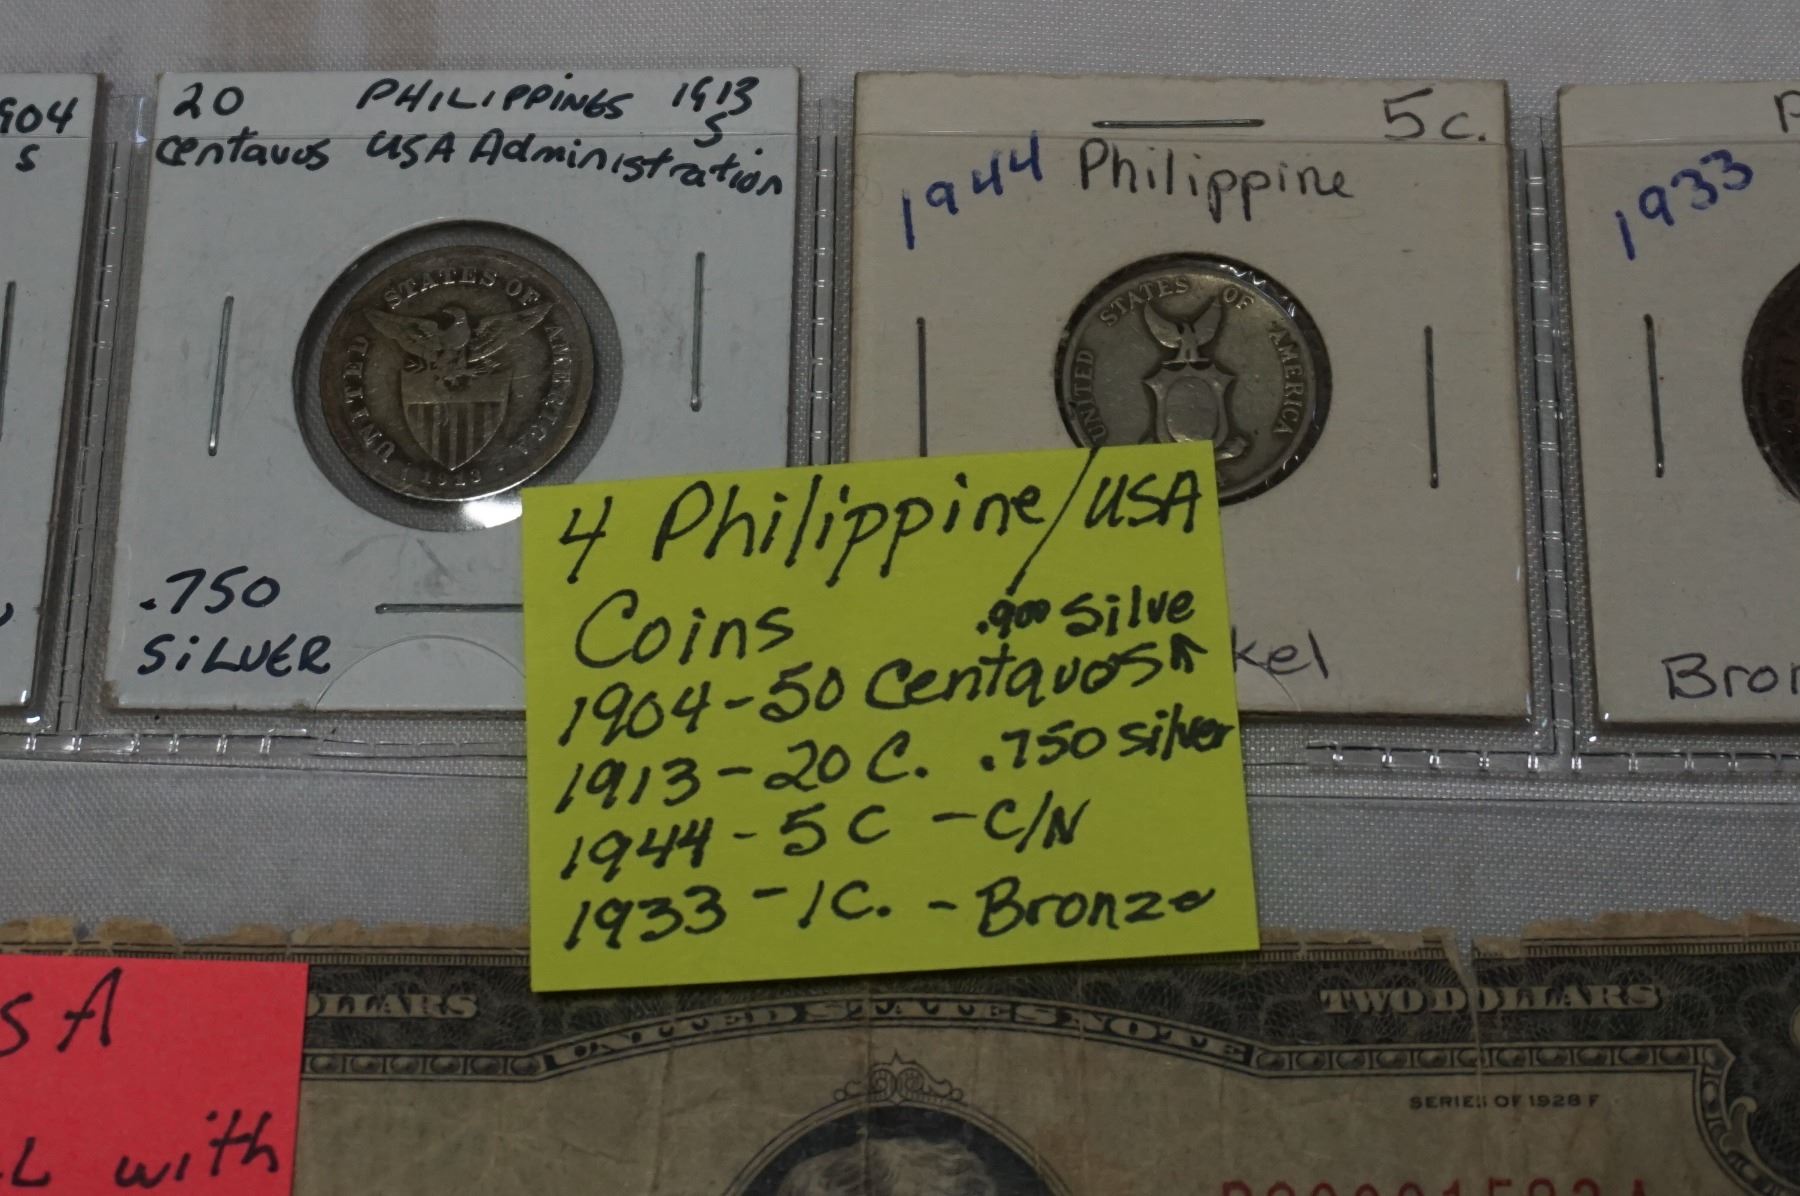 904
S
20 PHILIPPINES 1913
centavos USA Administration S.
UNITED STATES OF AMERICA
1913
.750
SILVER
5c.
1944 Philippine
UNITED STATES OF AMERICA
kel
P
1933
Bron
4 Philippine/USA
Coins .900 Silve
1904-50 Centavos↑
1913-20 C. .750 silver
1944-5C -C/N
1933-1C.-Bronze
SA
LL with
OLLARS
UNITED STATES NOTE
TWO DOLLARS
SERIES OF 1928 F